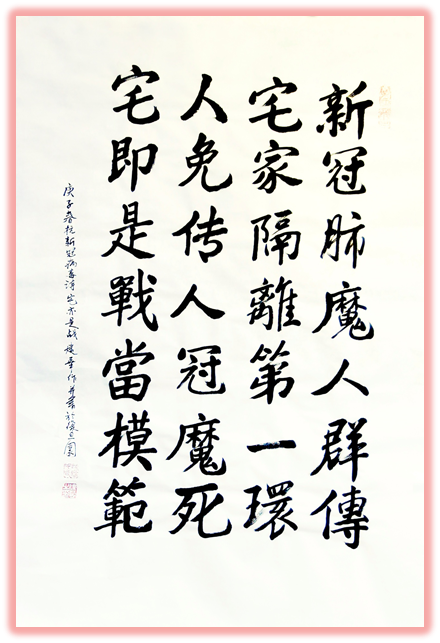 新冠肺魔人群傳
宅家隔離第一環
人免传人冠魔死
宅即是戰當模範
庚子春抗新冠病毒诗宅亦是战作并書於